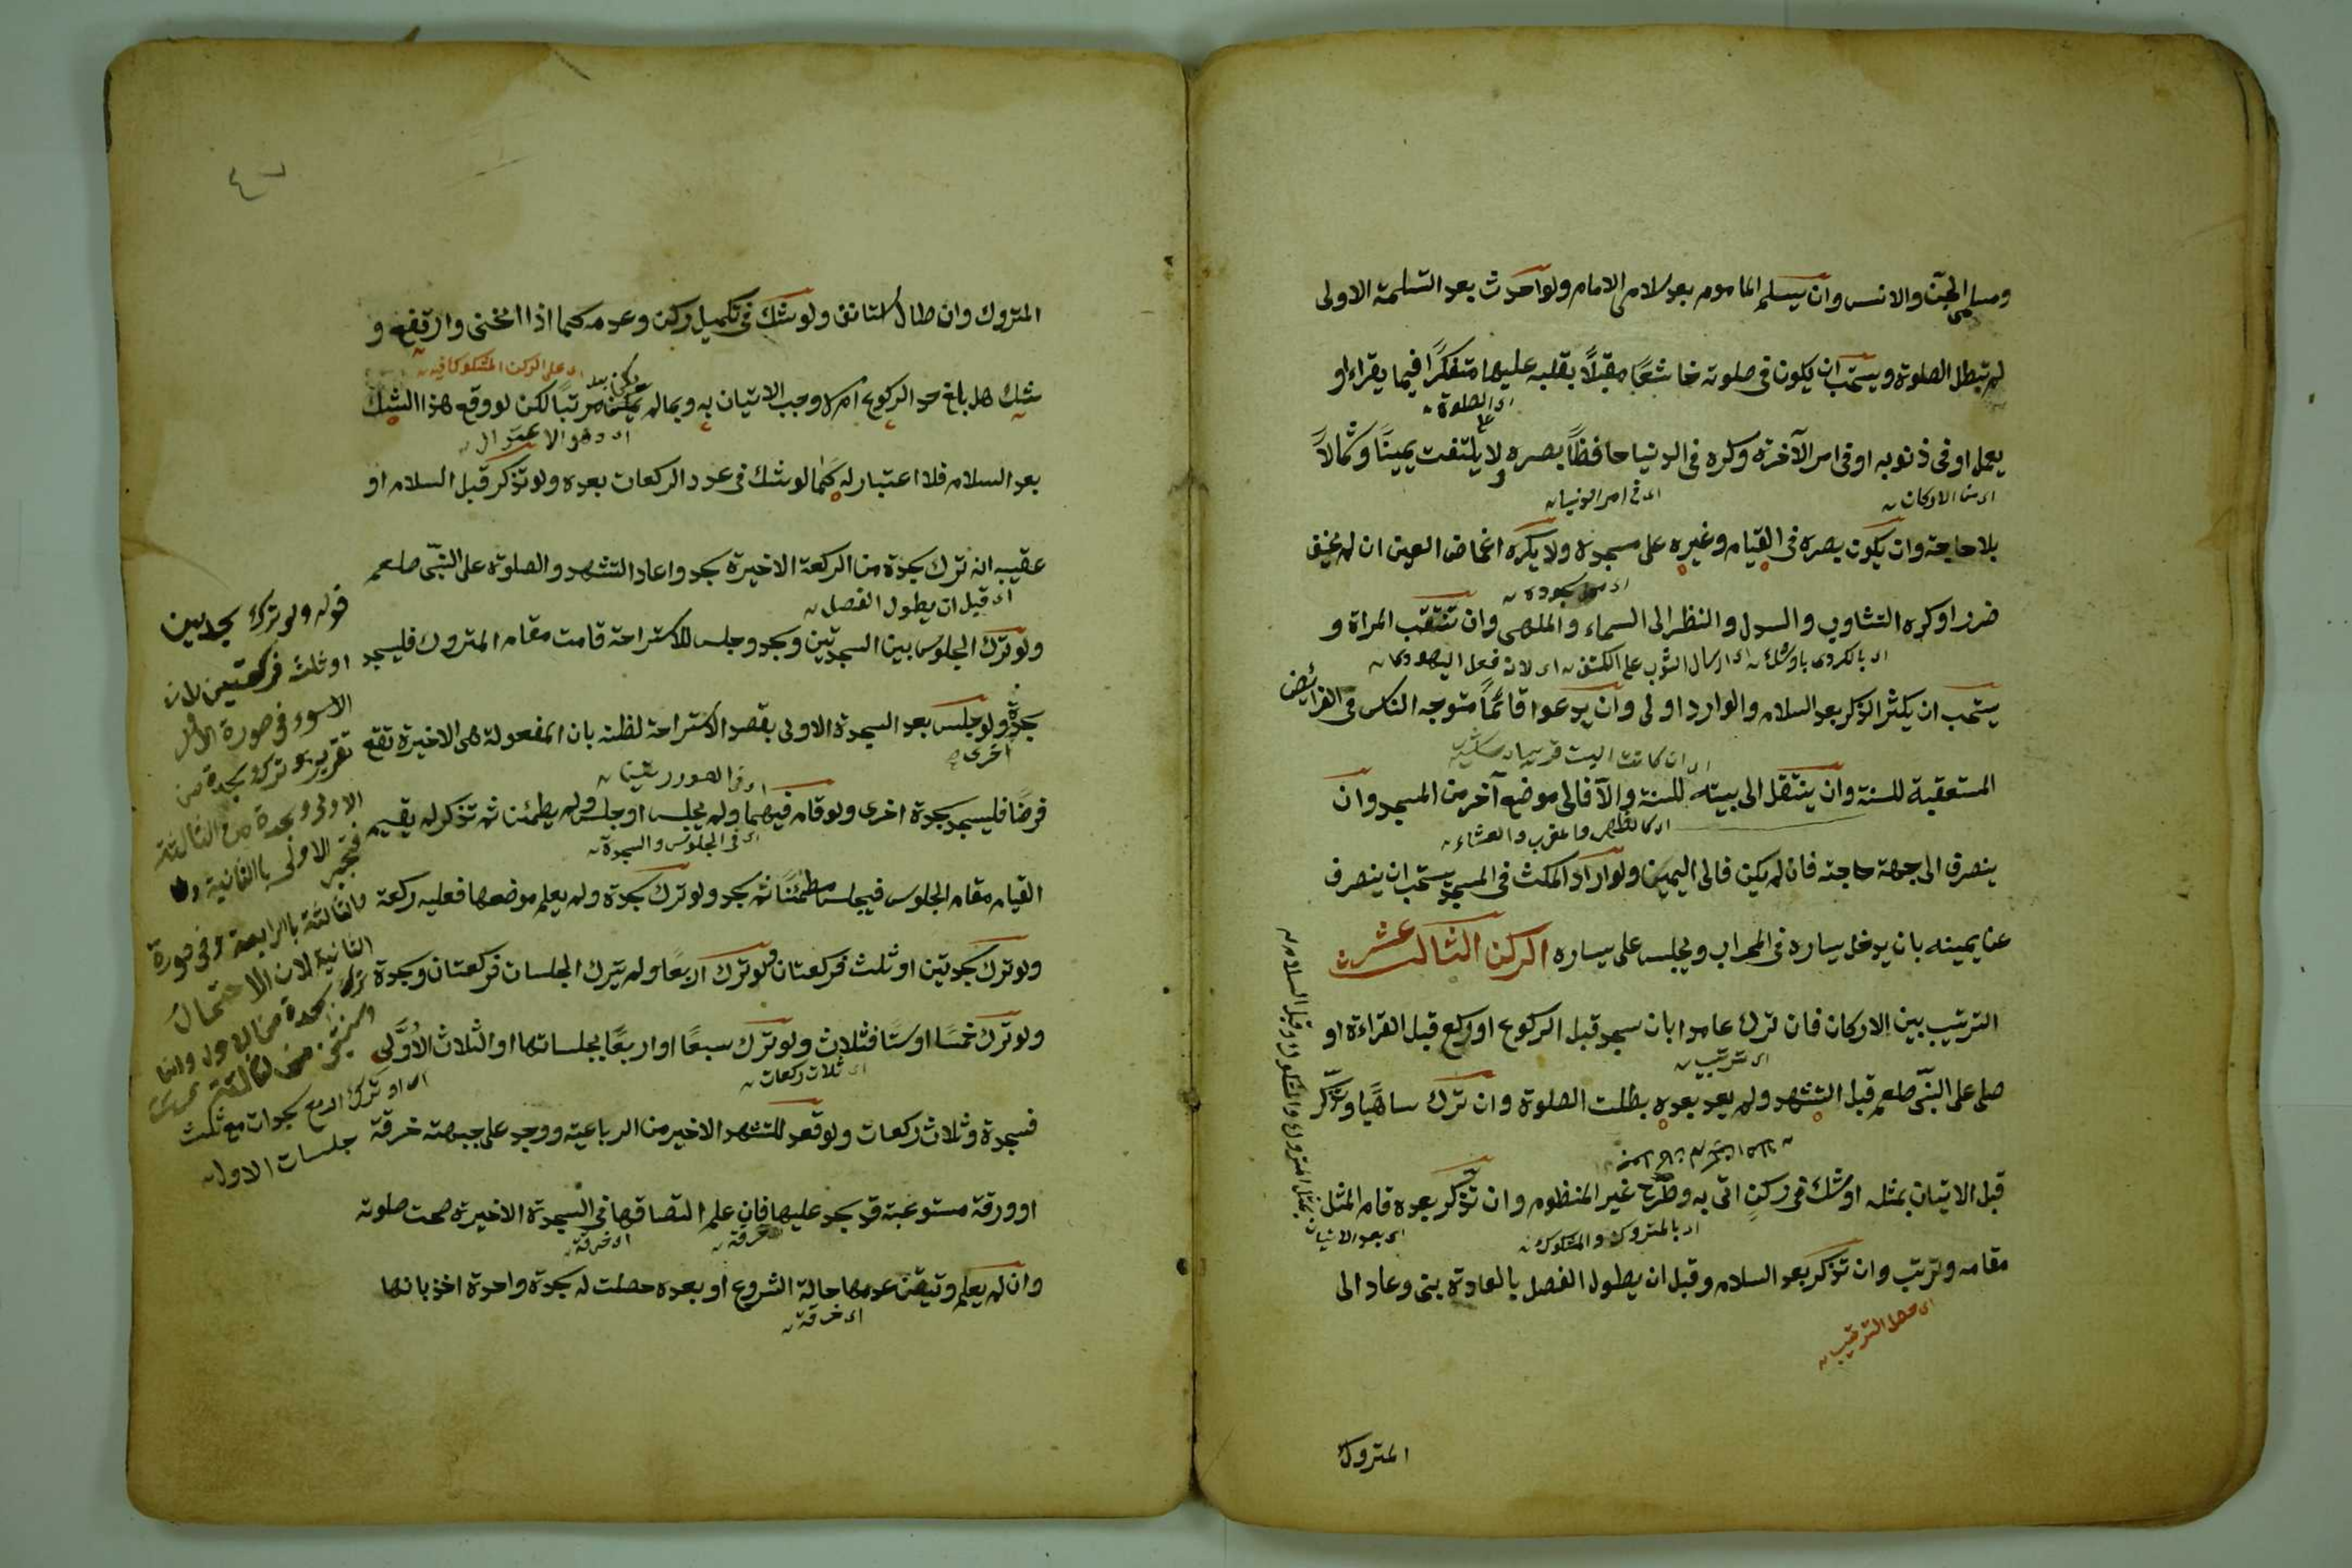 ومسلمى الجن والانس وان يسلم الماموم بعد سلامى الامام ولو احدث بعد التسليمة الاولى
لم تبطل الصلوة ويستحب ان يكون فى صلوته خاشعًا مقبلًا بقلبه عليها متفكرًا فيما يقراء او
اى الصلوة
يعمل او فى ذنوبه او فى امر الآخرة وكره فى الدنيا حافظًا بصره ولا يلتفت يمينًا وشمالًا
اى من الاركان
اى فى امر الدنيا
بلا حاجة وان يكون بصره فى القيام وغيره على مسجده ولا يكره اغماض العين ان لم يخف
اى محل سجوده
ضررا وكره التثاوب والسدل والنظر الى السماء والملهى وان تنتقب المراة و
اى ارسال الثوب على الكتف اى لان فعل اليهودى
يستحب ان يكثر الذكر بعد السلام والوارد اولى وان يدعوا قائمًا متوجه الناس فى الفرائض
المستعقبة للسنة وان ينتقل الى بيته للسنة والآ فالى موضع آخر من المسجد وان
اى كالظهر والمغرب والعشاء
ينصرف الى جهة حاجته فان لم يكن فالى اليمين ولو اراد المكث فى المسجد يستحب ان ينصرف
عن يمينه بان يدخل يساره فى المحراب ويجلس على يساره الركن الثالث عشر
الترتيب بين الاركان فان ترك عامدا بان سجد قبل الركوع او ركع قبل القراءة او
اى ترتيب
صلى على النبى صلعم قبل التشهد ولم يعد بعده بطلت الصلوة وان ترك ساهيًا وتذكّر
قبل الاتيان بمثله او شك فى ركن اتى به وطرح غير المنظوم وان تذكر بعده قام المثل
اى بالمتروك والمشكوك
اى بعد الاتيان بمثل المتروك والمشكوك وقبل السلام
مقامه وترتب وان تذكر بعد السلام وقبل ان يطول الفصل بالعادة بنى وعاد الى
اى محل الترتيب
المتروك
المتروك وان طال استانف ولو شك فى تكميل ركن وعدمه كما اذا انحنى وارتفع و
اى على الركن المشكوك فيه
شك هل بلغ حد الركوع ام لا وجب الاتيان به وبما لم يكن مرتبًا لكن لو وقع هذا الشك
اى وهو الاعتدال
بعد السلام فلا اعتبار له كما لو شك فى عدد الركعات بعده ولو تذكر قبل السلام او
عقيبه انه ترك سجدة من الركعة الاخيرة سجد واعاد التشهد والصلوة على النبى صلعم
اى قبل ان يطول الفصل
ولو ترك الجلوس بين السجدتين وسجد وجلس للاستراحة قامت مقام المتروك فليسجد
سجدة ولو جلس بعد السجدة الاولى بقصد الاستراحة لظنه بان المفعولة هى الاخيرة تقع
اخرى
فرضًا فليسجد سجدة اخرى ولو قام فيهما ولم يجلس او جلس ولم يطمئن ثم تذكر لم يقم
اى فى الجلوس والسجدة
القيام مقام الجلوس فيجلس مطمئنًا ثم سجد ولو ترك سجدة ولم يعلم موضعها فعليه ركعة
ولو ترك سجدتين او ثلث فركعتان ولو ترك اربعًا ولم يترك الجلسات فركعتان وسجدة
ولو ترك خمسًا او ستًا فثلاث ولو ترك سبعًا او اربعًا بجلساتها او الثلاث الأُوَّلى
اى ثلاث ركعات
اى او ترك اربع سجدات مع ثلث
جلسات الاول
فسجدة وثلاث ركعات ولو قعد للتشهد الاخير من الرباعية ووجد على جبهته خرقة
او ورقة مستوعبة قد سجد عليها فان علم التصاقها فى السجدة الاخيرة صحت صلوته
اى خرقة
وان لم يعلم وتيقن عدمها حالة الشروع او بعده حصلت له سجدة واحدة اخذ بانها
اى خرقة
قوله ولو ترك سجدتين
او ثلث فركعتين لان
الاسوء فى صورة الاول
تقرير هو ترك سجدة من
الاولى وسجدة من الثالثة
فتجبر الاولى بالثانية
والثالثة بالرابعة وفى صورة
الثانية لان الاحتمال
ترك سجدة من الاول